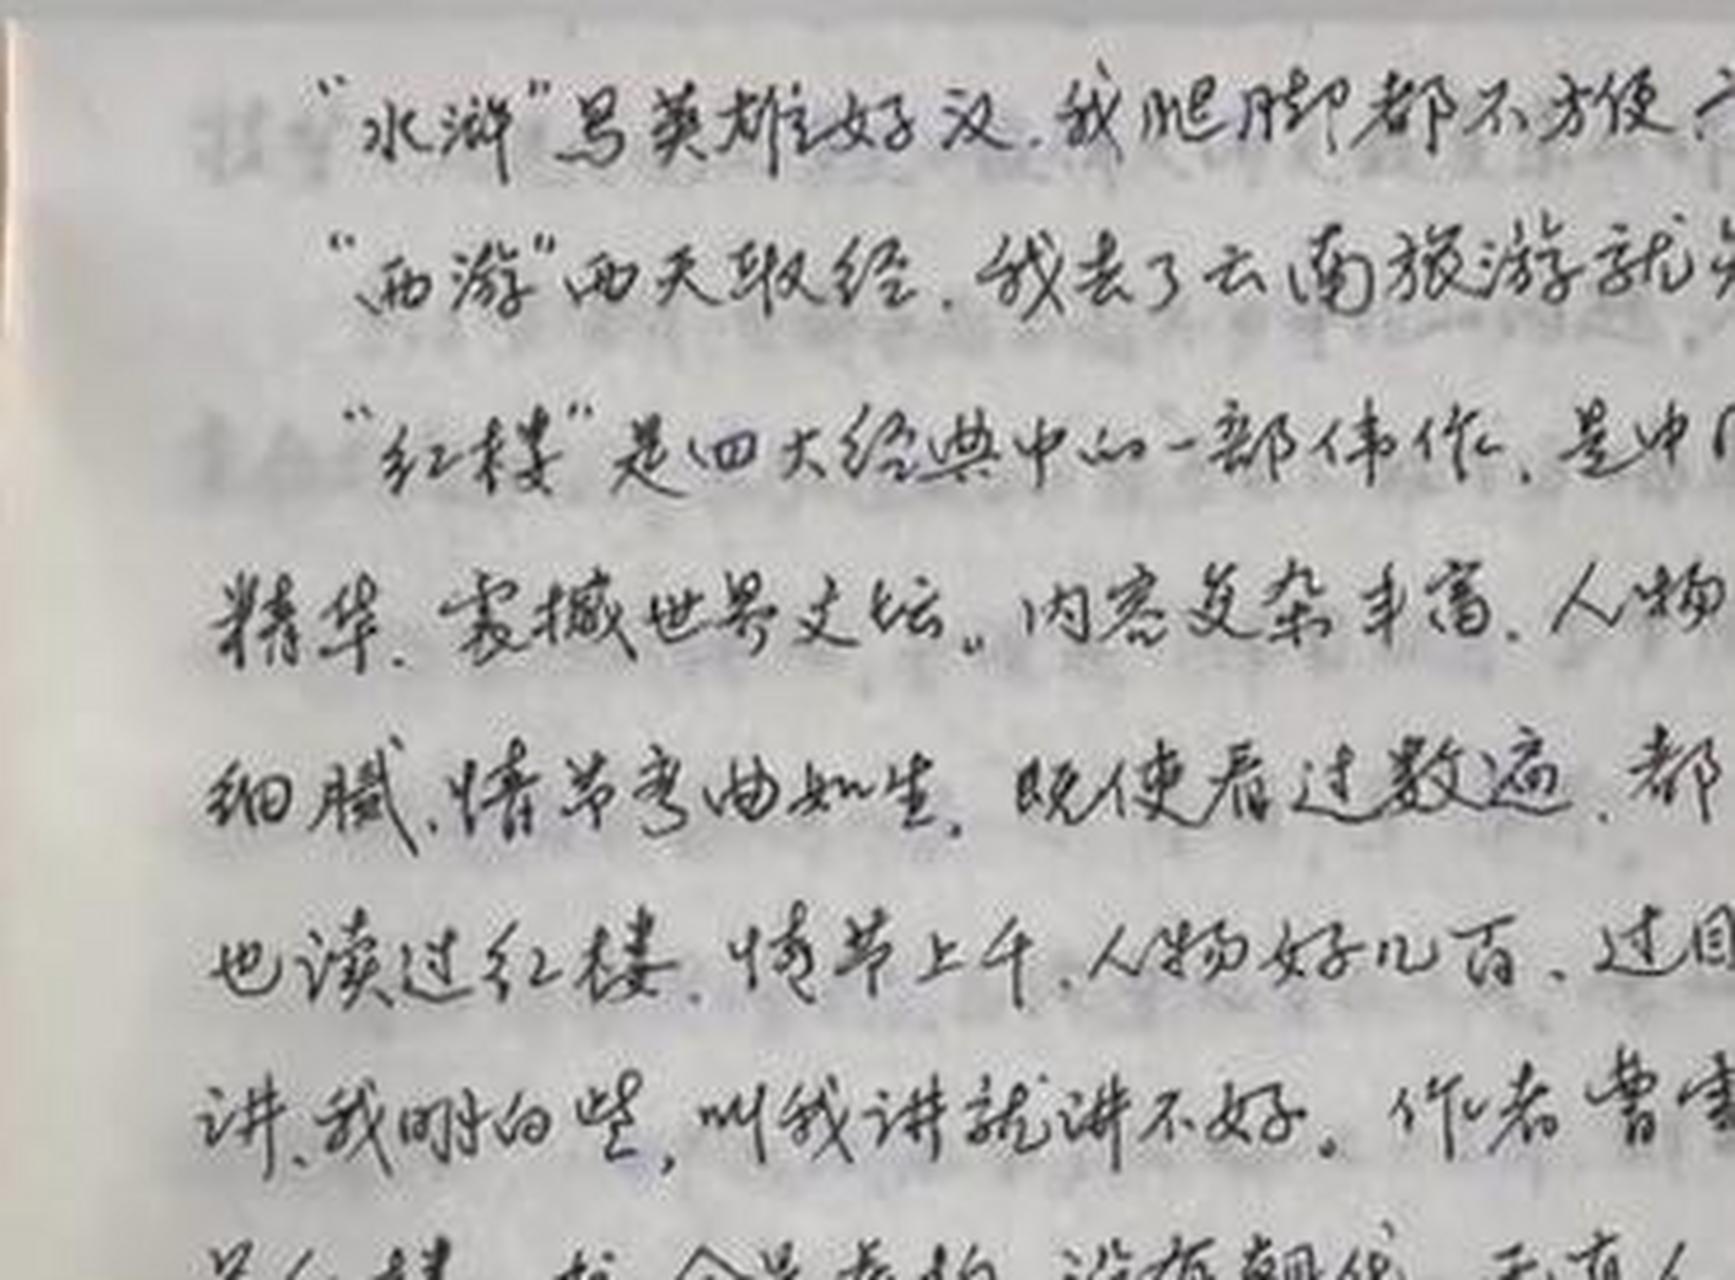 “水浒”写英雄好汉.我腿脚都不方便
“西游”西天取经.我去了云南旅游就
“红楼”是四大经典中的一部伟作.是中
精华.震撼世界文坛。内容复杂丰富.人物
细腻.情节弯曲如生.既使看过数遍.都
也读过红楼.情节上千.人物好几百、过目
讲.我明白些,叫我讲就讲不好。作者曹雪
没有朝代